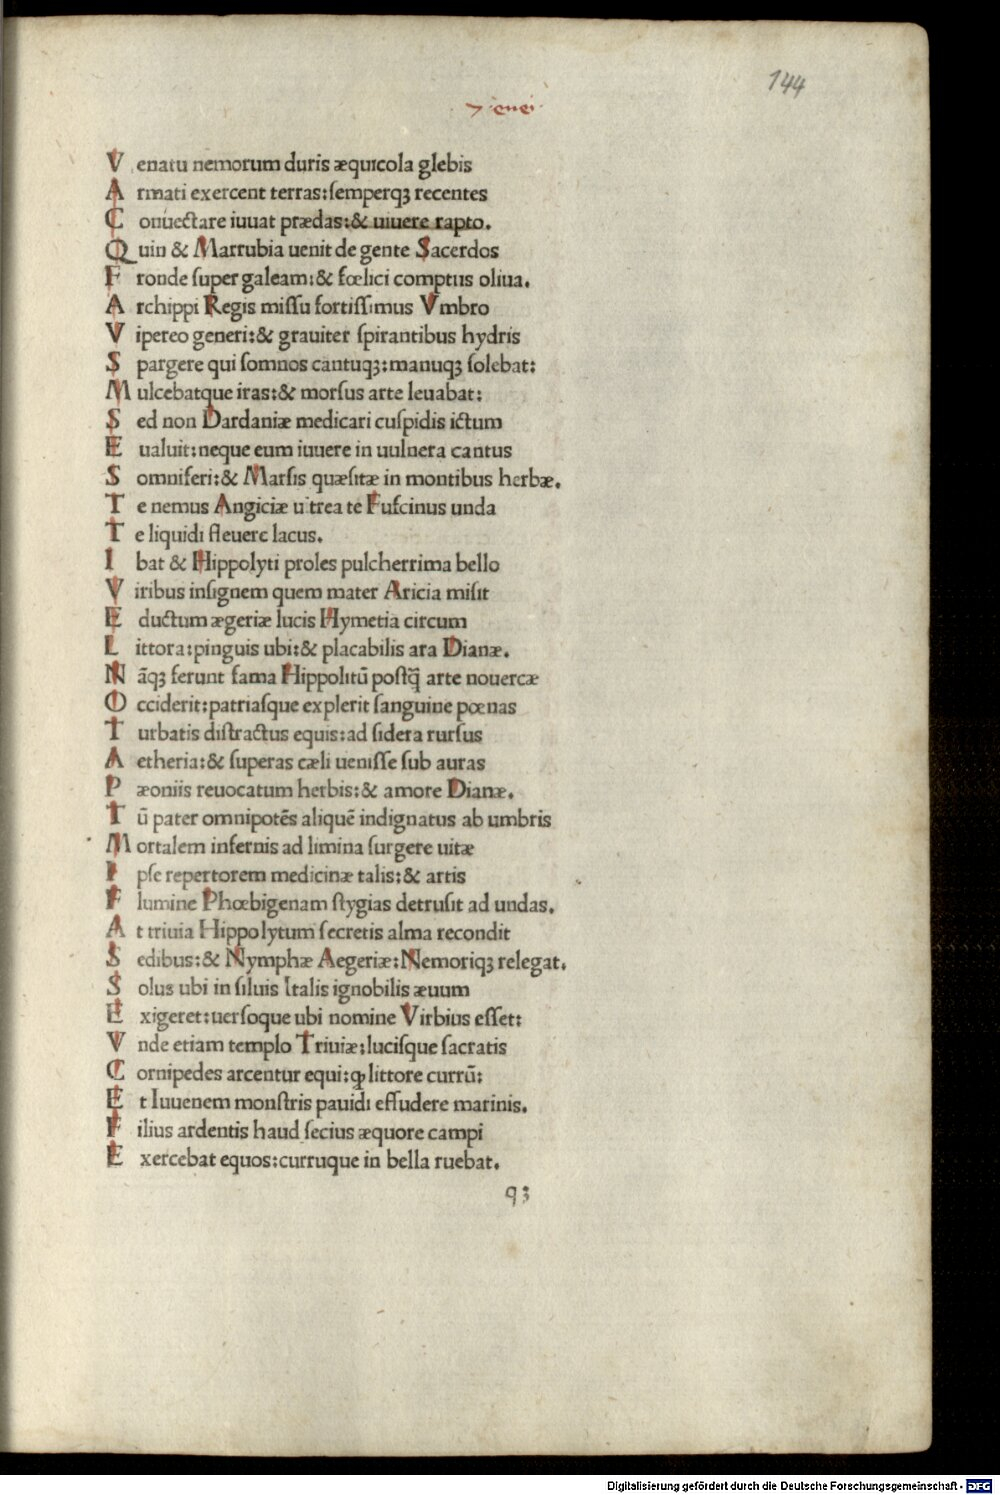 144
7 enei
V enatu nemorum duris æquicola glebis
A rmati exercent terras:semperqꝫ recentes
C onuectare iuuat prædas:& uiuere rapto.
Q uin & Marrubia uenit de gente Sacerdos
F ronde super galeam:& fœlici comptus oliua.
A rchippi Regis missu fortissimus Vmbro
V ipereo generi:& grauiter spirantibus hydris
S pargere qui somnos cantuqꝫ:manuqꝫ solebat:
M ulcebatque iras:& morsus arte leuabat:
S ed non Dardaniæ medicari cuspidis ictum
E ualuit:neque eum iuuere in uulnera cantus
S omniferi:& Marsis quæsitæ in montibus herbæ.
T e nemus Angiciæ uitrea te Fufcinus unda
T e liquidi fleuere lacus.
I bat & Hippolyti proles pulcherrima bello
V iribus insignem quem mater Aricia misit
E ductum ægeriæ lucis Hymetia circum
L ittora:pinguis ubi:& placabilis ara Dianæ.
N āqꝫ ferunt fama Hippolitū postq̄ arte nouercæ
O cciderit:patriasque explerit sanguine pœnas
T urbatis distractus equis:ad sidera rursus
A etheria:& superas cæli uenisse sub auras
P æoniis reuocatum herbis:& amore Dianæ.
T ū pater omnipotēs aliquē indignatus ab umbris
M ortalem infernis ad limina surgere uitæ
I pse repertorem medicinæ talis:& artis
F lumine Phœbigenam stygias detrusit ad undas.
A t triuia Hippolytum secretis alma recondit
S edibus:& Nymphæ Aegeriæ:Nemoriqꝫ relegat.
S olus ubi in siluis Italis ignobilis æuum
E xigeret:uersoque ubi nomine Virbius esset:
V nde etiam templo Triuiæ:lucisque sacratis
C ornipedes arcentur equi:ꝙ littore currū:
E t Iuuenem monstris pauidi effudere marinis.
F ilius ardentis haud secius æquore campi
E xercebat equos:curruque in bella ruebat.
93
Digitalisierung gefördert durch die Deutsche Forschungsgemeinschaft - DFG